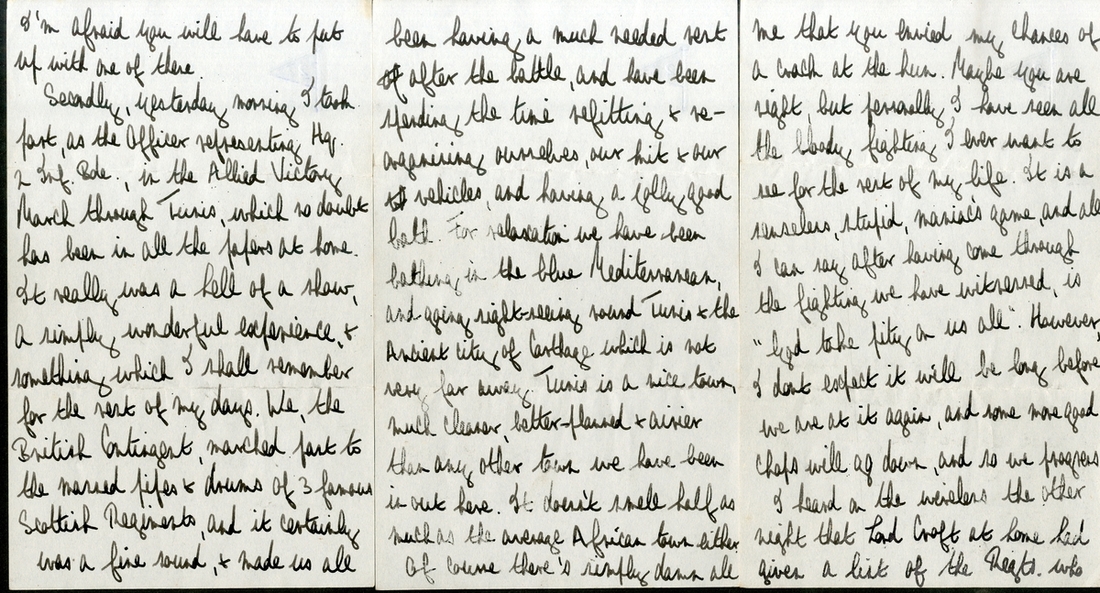 I'm afraid you will have to put
up with one of these.
Secondly, yesterday morning I took
part, as the Officer representing Hq.
2 Inf. Bde., in the Allied Victory
March through Tunis, which no doubt
has been in all the papers at home.
It really was a hell of a show,
a simply wonderful experience, &
something which I shall remember
for the rest of my days. We, the
British Contingent, marched past to
the massed pipes & drums of 3 famous
Scottish Regiments, and it certainly
was a fine sound, & made us all
been having a much needed rest
after the battle, and have been
spending the time refitting & re-
organising ourselves, our kit & our
vehicles, and having a jolly good
bath. For relaxation we have been
bathing in the blue Mediterranean,
and going sight-seeing round Tunis & the
Ancient City of Carthage which is not
very far away. Tunis is a nice town,
much cleaner, better-planned & airier
than any other town we have been
in out here. It doesn't smell half as
much as the average African town either
Of course there's simply damn all
me that you envied my chances of
a crack at the hun. Maybe you are
right, but personally, I have seen all
the bloody fighting I ever want to
see for the rest of my life. It is a
senseless, stupid, maniac's game, and all
I can say after having come through
the fighting we have witnessed, is
"God take pity on us all". However,
I dont expect it will be long before
we are at it again, and some more good
chaps will go down, and so we progress
I heard on the wireless the other
night that Lord Croft at home had
given a list of the Regts. who